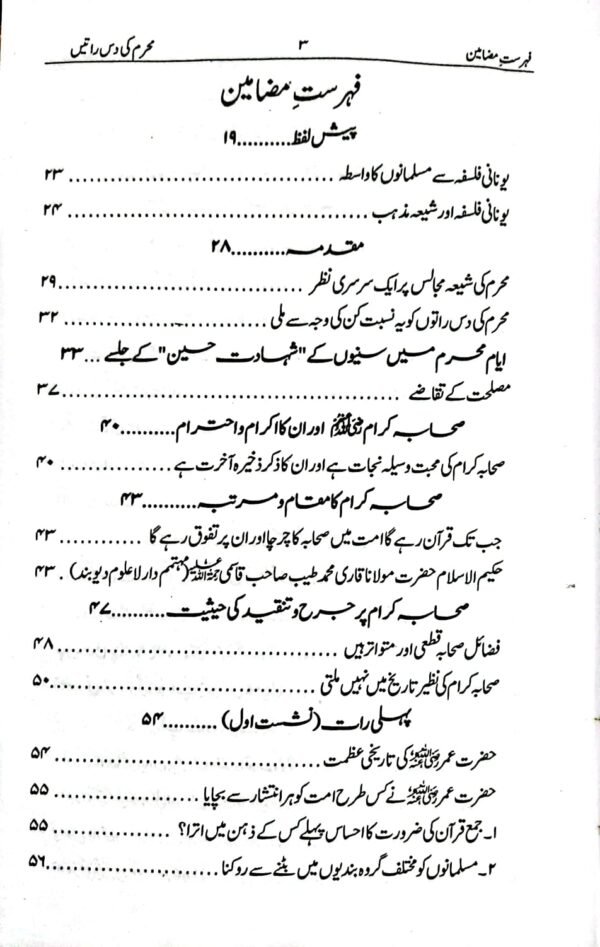 فہرست مضامین ۳ محرم کی دس راتیں
فہرستِ مضامین
پیش لفظ..........۱۹
یونانی فلسفہ سے مسلمانوں کا واسطہ .................................... ۲۳
یونانی فلسفہ اور شیعہ مذہب .................................... ۲۴
مقدمہ..........۲۸
محرم کی شیعہ مجالس پر ایک سرسری نظر ..................................۲۹
محرم کی دس راتوں کو یہ نسبت کن کی وجہ سے ملی ........................ ۳۲
ایام محرم میں سنیوں کے "شہادت حسین" کے جلسے ... ۳۳
مصلحت کے تقاضے ............................................ ۳۷
صحابہ کرام رضی اللہ عنہم اور ان کا اکرام و احترام..........۴۰
صحابہ کرام کی محبت وسیلہ نجات ہے اور ان کا ذکر ذخیرہ آخرت ہے .............. ۴۰
صحابہ کرام کا مقام و مرتبہ..........۴۳
جب تک قرآن رہے گا امت میں صحابہ کا چرچا اور ان پر تفوق رہے گا ............ ۴۳
حکیم الاسلام حضرت مولانا قاری محمد طیب صاحب قاسمی رحمۃ اللہ علیہ (مہتمم دارلا علوم دیوبند) . ۴۳
صحابہ کرام پر جرح و تنقید کی حیثیت..........۴۷
فضائل صحابہ قطعی اور متواتر ہیں .................................... ۴۸
صحابہ کرام کی نظیر تاریخ میں نہیں ملتی ....................................۵۰
پہلی رات (نشست اول) ..........۵۴
حضرت عمر رضی اللہ عنہ کی تاریخی عظمت .................................... ۵۴
حضرت عمر رضی اللہ عنہ نے کس طرح امت کو ہر انتشار سے بچایا .................... ۵۵
۱۔ جمع قرآن کی ضرورت کا احساس پہلے کس کے ذہن میں اترا؟ ................ ۵۵
۲۔ مسلمانوں کو مختلف گروہ بندیوں میں بٹنے سے روکنا ........................ ۵۶